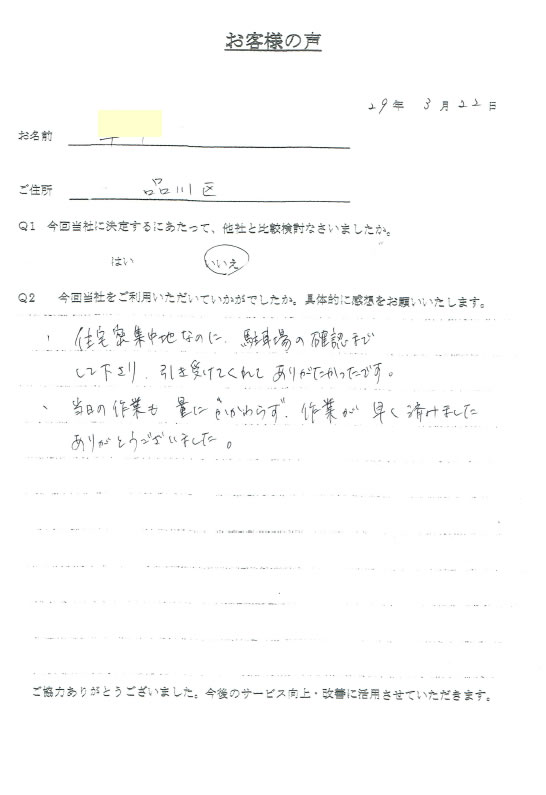 お客様の声
29年 3月22日
お名前
ご住所 品川区
Q1 今回当社に決定するにあたって、他社と比較検討なさいましたか。
はい いいえ
Q2 今回当社をご利用いただいていかがでしたか。具体的に感想をお願いいたします。
・ 住宅密集中地なのに、駐車場の確認まで
して下さり、引き受けてくれて ありがたかったです。
・ 当日の作業も 量にもかかわらず、作業が 早く済みました
ありがとうございました。
ご協力ありがとうございました。今後のサービス向上・改善に活用させていただきます。